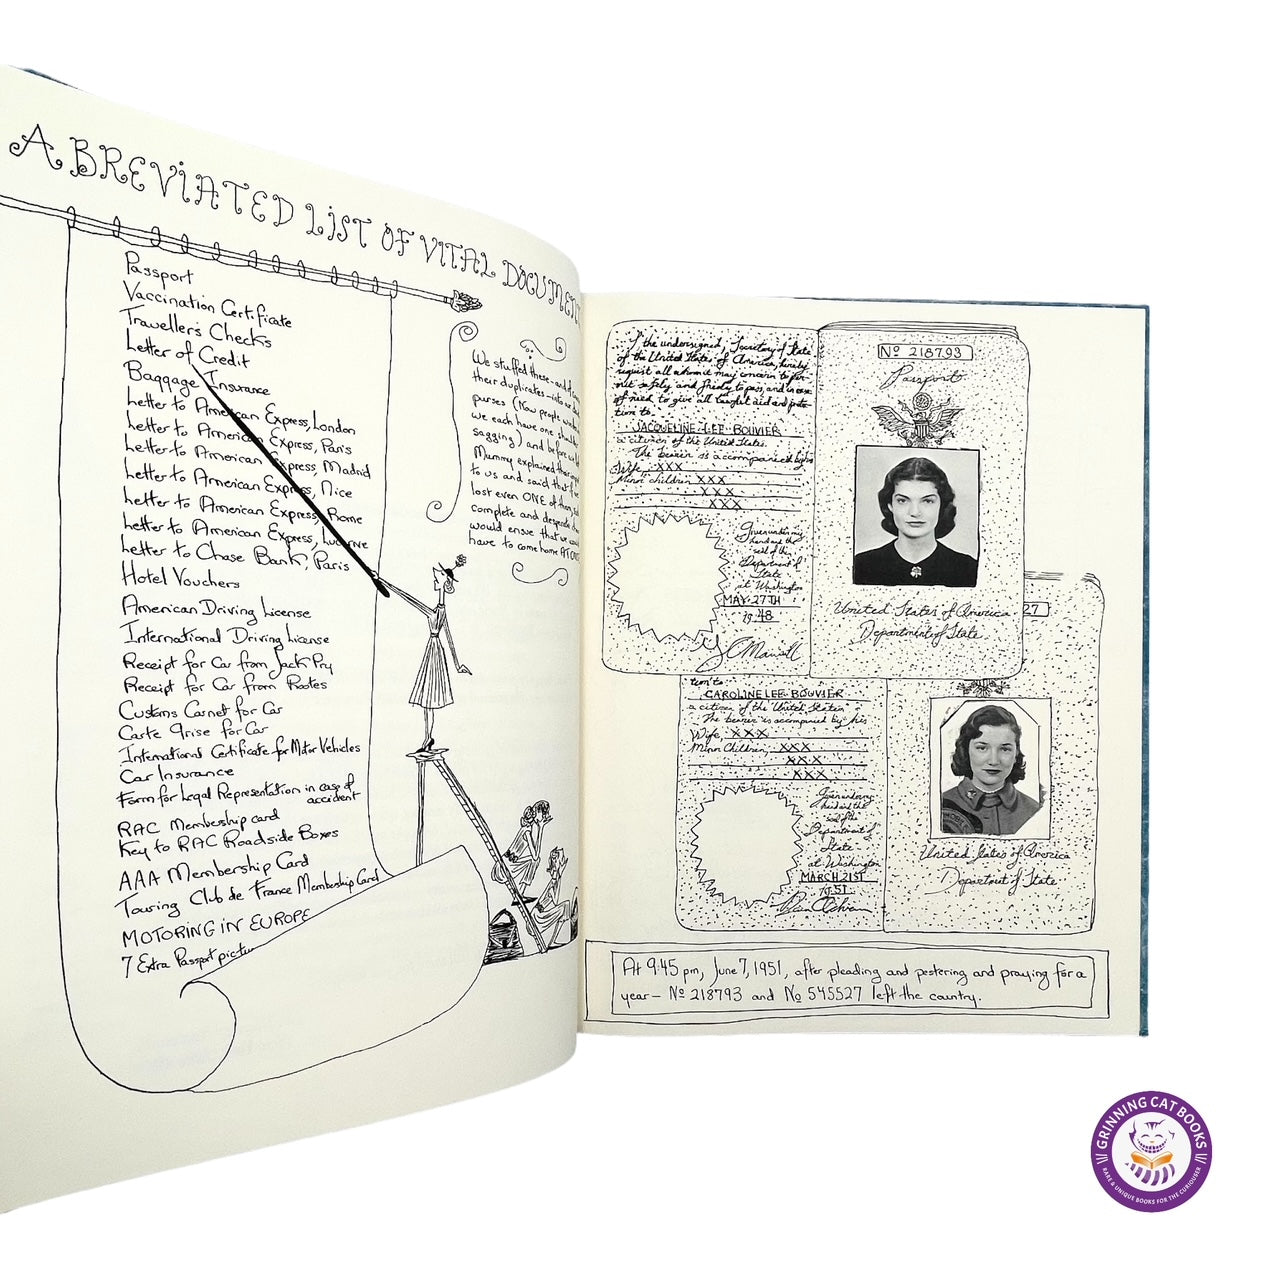 ABREVIATED LIST OF VITAL DOCUMENT
Passport
Vaccination Certificate
Traveller's Checks
Letter of Credit
Baggage Insurance
Letter to American Express, London
Letter to American Express, Paris
Letter to American Express, Madrid
Letter to American Express, Nice
Letter to American Express, Rome
Letter to American Express, Lucerne
Letter to Chase Bank, Paris
Hotel Vouchers
American Driving License
International Driving License
Receipt for Car from Jack Pry
Receipt for Car from Rootes
Customs Carnet for Car
Carte Grise for Car
International Certificate for Motor Vehicles
Car Insurance
Form for Legal Representation in case of
accident
RAC Membership card
Key to RAC Roadside Boxes
AAA Membership Card
Touring Club de France Membership Card
MOTORING IN EUROPE
7 Extra Passport pictur
We stuffed these - and
their duplicates - into
purses (Now people
we each have one
sagging) and before we
Mummy explained
to us and said that if
lost even ONE of them
complete and desperate
would ensue that we would
have to come home AT ONCE
I the undersigned, Secretary of State
of the United States of America, hereby
request all whom it may concern to per-
mit safely and freely to pass, and in case
of need to give all lawful aid and protec-
tion to
JACQUELINE LEE BOUVIER
a citizen of the United States.
The bearer is accompanied by his
Wife, XXX
Minor children, XXX
XXX
XXX
Given under my
hand and the
seal of the
Department of
State
at Washington
MAY 27TH
1948
Nº 218793
Passport
United States of America
Department of State
27
tion to
CAROLINE LEE BOUVIER
a citizen of the United States
The bearer is accompanied by his
Wife, XXX
Minor Children, XXX
XXX
XXX
Given under my
hand and the
seal of the
Department of
State
at Washington
MARCH 21ST
1951
United States of America
Department of State
At 9:45 pm, June 7, 1951, after pleading and pestering and praying for a
year - Nº 218793 and Nº 545527 left the country.
GRINNING CAT BOOKS
RARE & UNIQUE BOOKS FOR THE CURIOUSER